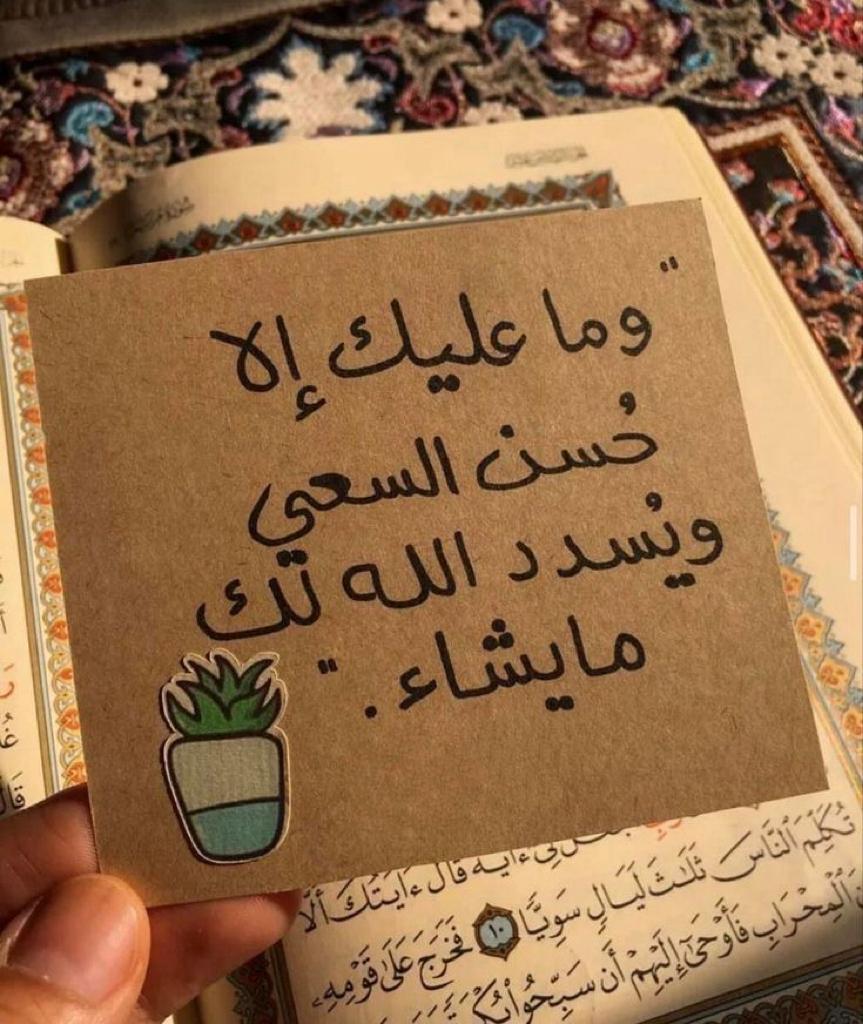 "وما عليك إلا
حُسن السعي
ويُسدد الله لك
مايشاء ."
ءَايَةً قَالَ ءَايَتُكَ أَلَّا
تُكَلِّمَ النَّاسَ ثَلَٰثَ لَيَالٍ سَوِيًّا ١٠ فَخَرَجَ عَلَىٰ قَوْمِهِۦ
الْمِحْرَابِ فَأَوْحَىٰٓ إِلَيْهِمْ أَن سَبِّحُوا۟